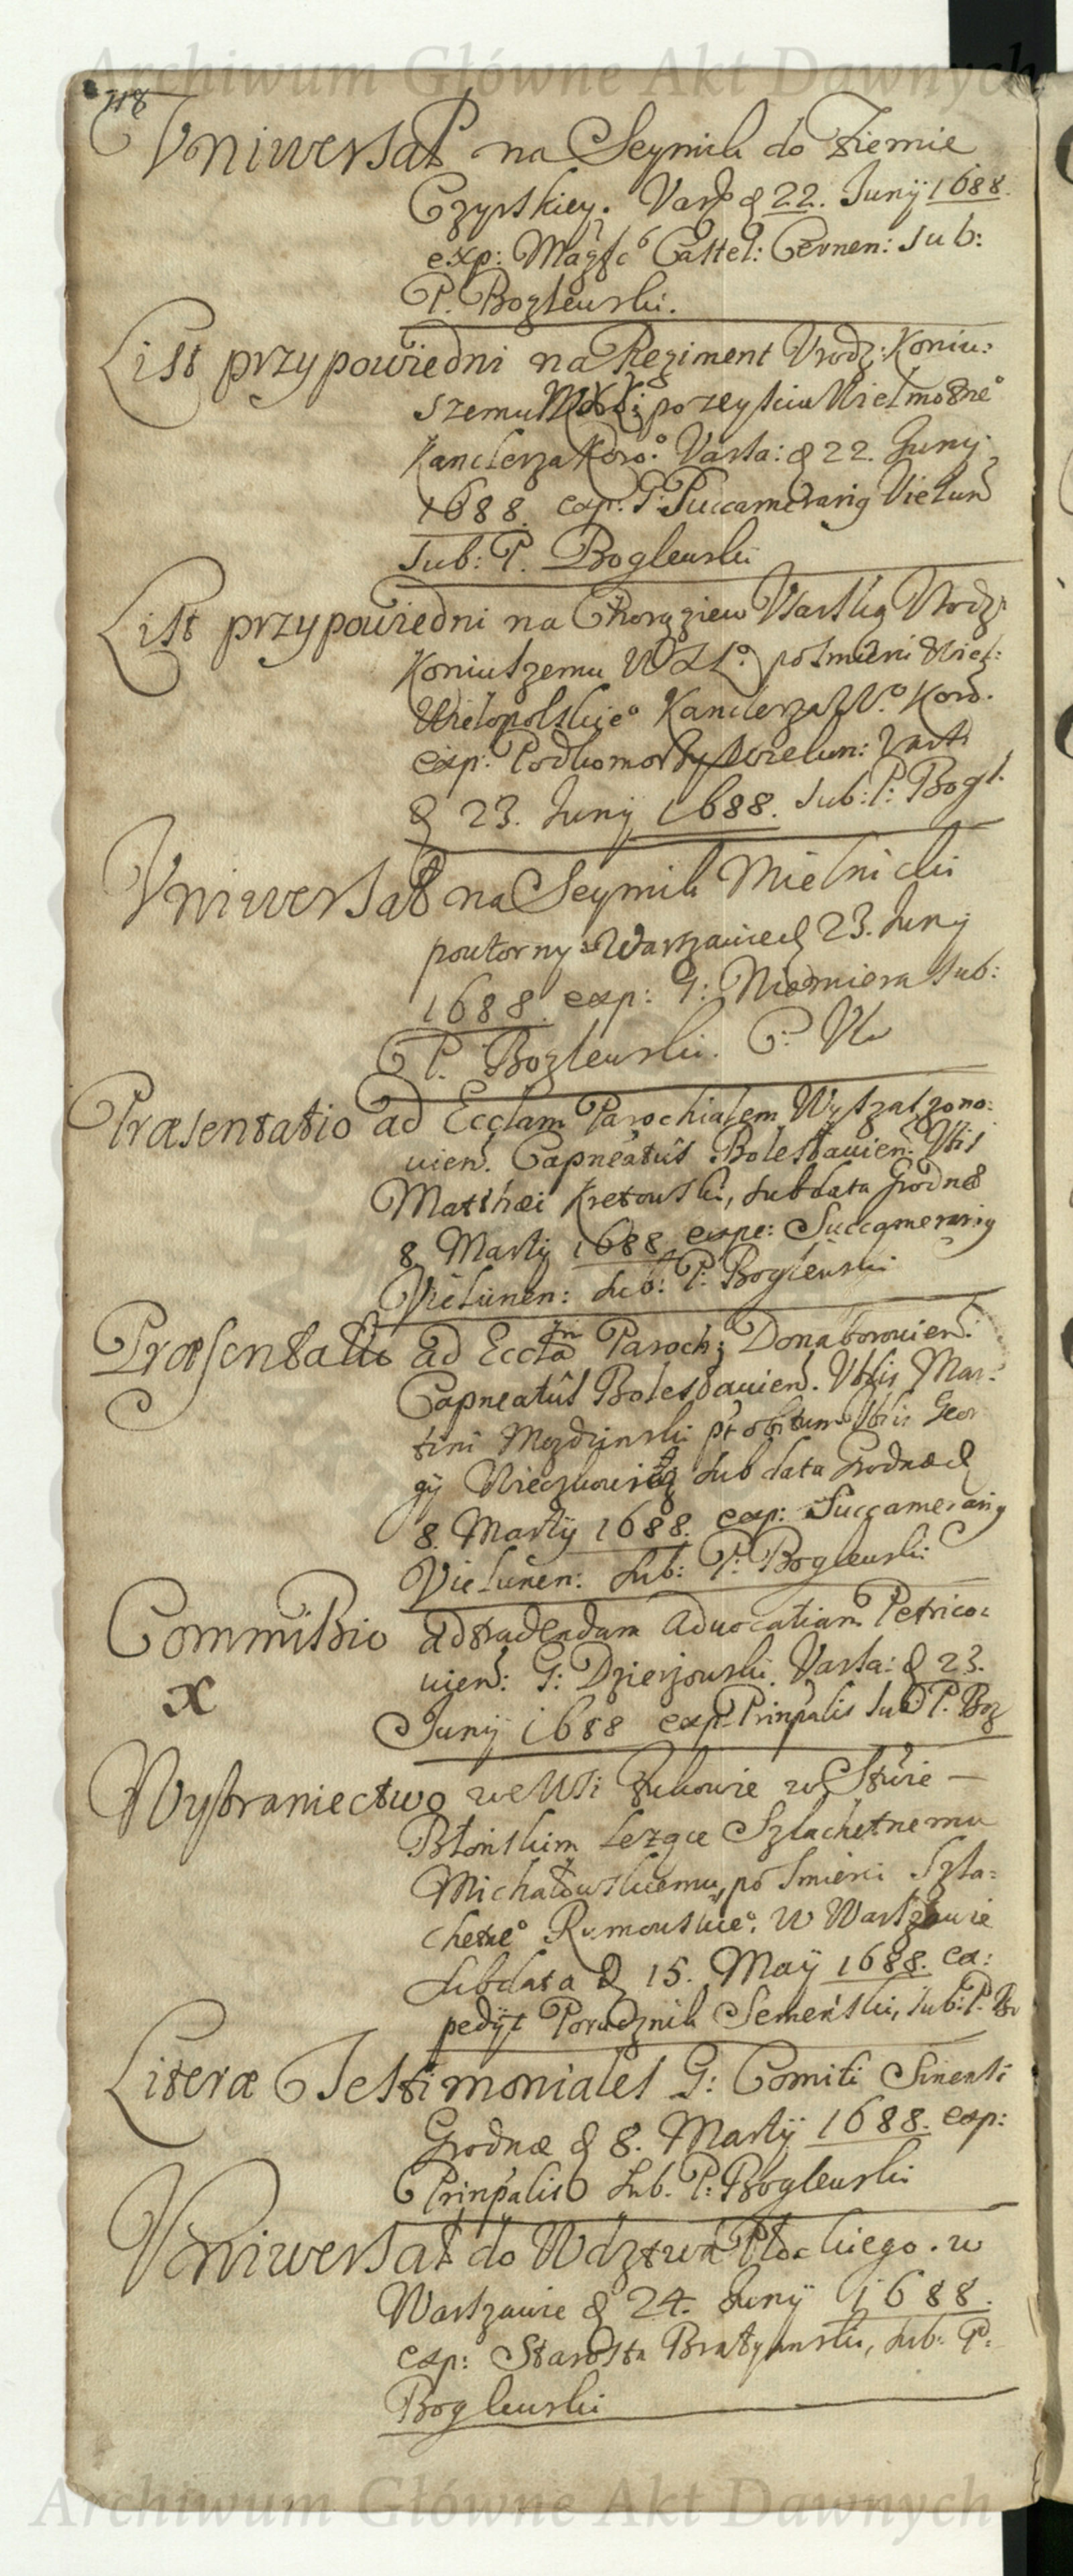 Archiwum Główne Akt Dawnych
118
Vniwersał na Seymik do Ziemie
Czyrskiey. Vars. d 22. Junÿ 1688.
exp: Magfc9 Castel: Cernen: sub:
P. Boglewski.
List przypowiedni na Regiment Vrodz: Koniu:
szemu po zeysciu Wielmożne°
Kanclerza Koro°: Varsa: d 22. Juny
1688. exp. G: Succamerarig Vielun
Sub: P. Boglewski
List przypowiedni na Chorągiew Vsarską Vrodz:
Koniuszemu WXL° po smierci Wiel:
Wielopolskie° Kanclerza W.° Koro.
exp: Podkomorzy Wielun: Vars
d 23. Juny 1688. sub: P: Bogl.
Vniwersał na Seymik Mielnicki
powtorny: w Warszawie d 23. Juny
1688. exp: G: Niemiera sub:
P. Boglewski.
Præsentatio ad Ecclam Parochialem Wyszaszono:
uien. Capneatûs Bolesłauien: Vbis
Matthæi Kretowski, sub data Grodnæ
8. Martÿ 1688 expe: Succamerarig
Vielunen: sub: P: Boglewski
Præsentatio ad Eccla Paroch: Donaborouien.
Capneatûs Bolesłauien. Vblis Mar:
tini Mozdzinski pt obitum Vblis Geor
gÿ sub data Grodnæ d
8. Martÿ 1688. exp: Succamerarig
Vielunen: sub: P: Boglewski
Commissio ad tradendam aduocatiam Petrico:
uien: G: Dzierzowski. Varsa: d 23.
x
Junÿ 1688 exp. Prinpalis sub P. Bog
Wybraniectwo we Wsi Zukowie w Stwie
Błonskim lezące Szlachetnemu
Michałowskiemu, po smierci Szla:
chetne° Rumowskie°. W Warszawie
sub data d 15. Maÿ 1688. ex:
pedÿt Porucznik Semenski, sub: P. Bo
Literæ Testimoniales G: Comiti
Grodnæ d 8. Martÿ 1688. exp:
Prinpalis sub. P: Boglewski
Vniwersał do Wdztwa Płockiego. w
Warszawie d 24. Junÿ 1688.
exp: Starosta Bratyanski, sub: P:
Boglewski
Archiwum Główne Akt Dawnych